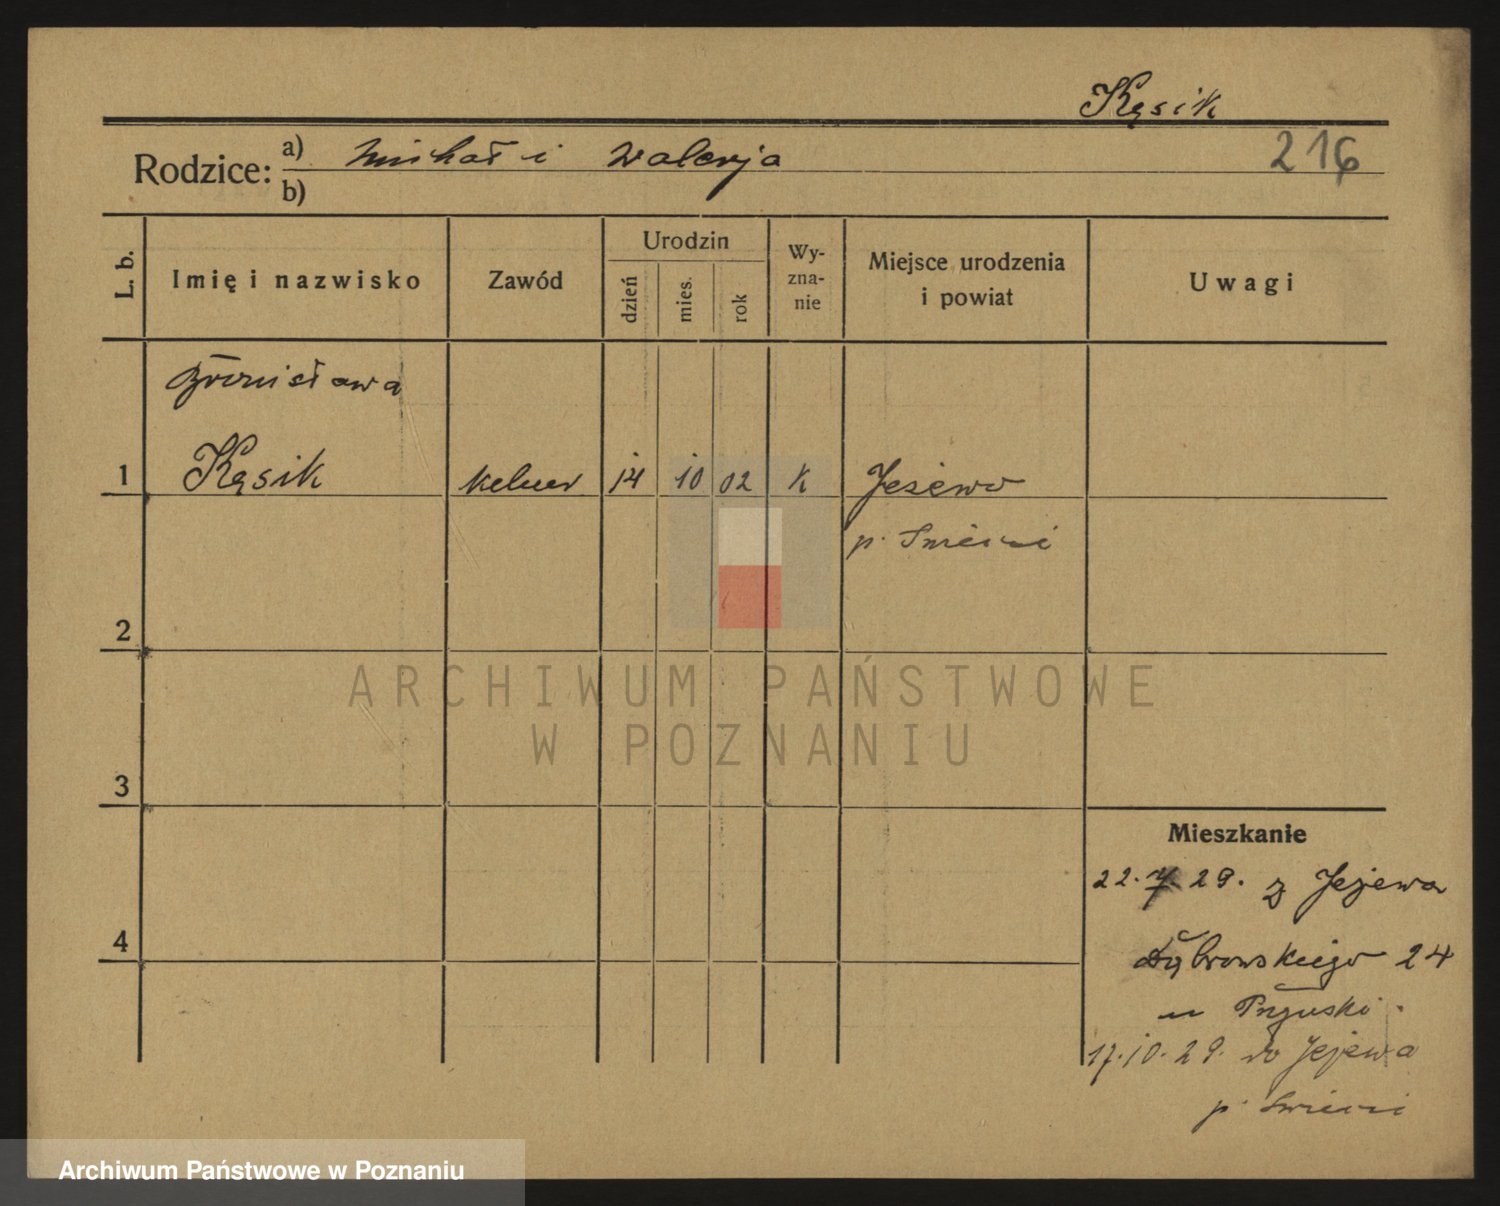 Kąsik
216
Rodzice: a) Michał i Walerja
b)
L. b.
Imię i nazwisko
Zawód
Urodzin
dzień
mies.
rok
Wy-
zna-
nie
Miejsce urodzenia
i powiat
Uwagi
Bronisława
1 Kąsik kelner 14 10 02 K Jeżewo
p. Świecie
2
ARCHIWUM PAŃSTWOWE
W POZNANIU
3
Mieszkanie
22.7.29. z Jeżewa
4
Dąbrowskiego 24
u
17.10.29. do Jeżewa
p. Świecie
Archiwum Państwowe w Poznaniu